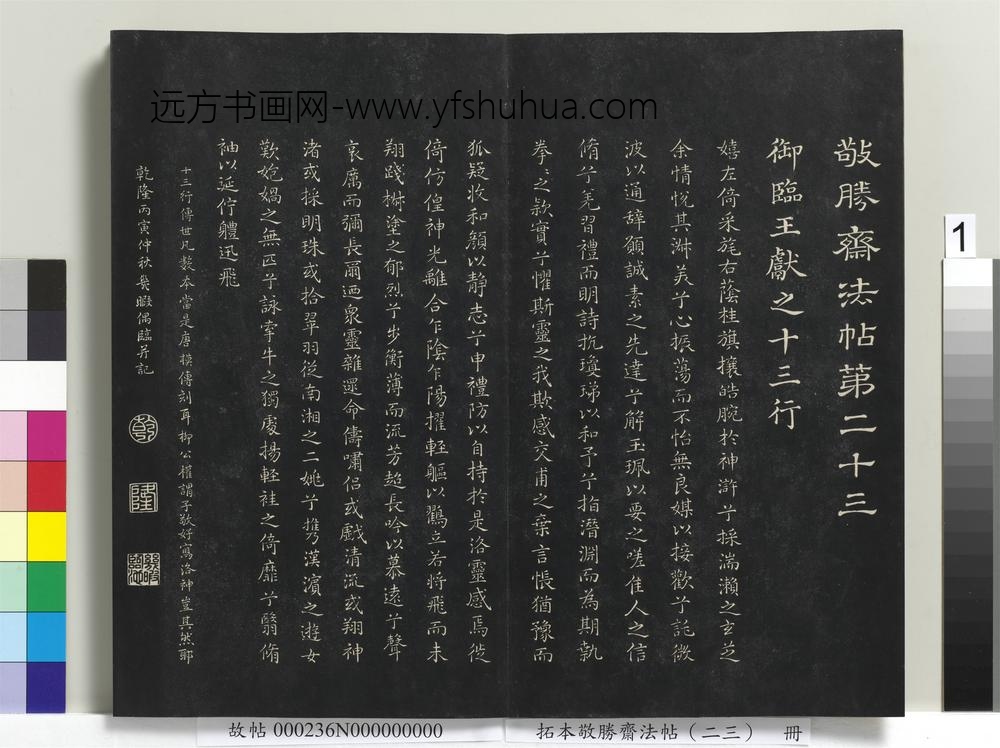 敬勝齋法帖第二十三
御臨王獻之十三行
嬉左倚采旄右蔭桂旗攘皓腕於神滸兮採湍瀨之玄芝
余情恱其淑美兮心振蕩而不怡無良媒以接歡兮託微
波以通辭願誠素之先達兮解玉珮以要之嗟佳人之信
脩兮羌習禮而明詩抗瓊珶以和予兮指潛淵而為期執
拳〻之款實兮懼斯靈之我欺感交甫之棄言悵猶豫而
狐疑收和顏以静志兮申禮防以自持於是洛靈感焉徙
倚仿偟神光離合乍陰乍陽擢輕軀以鶴立若將飛而未
翔踐椒塗之郁烈兮步衡薄而流芳超長吟以慕遠兮聲
哀厲而彌長爾迺衆靈雜遝命儔嘯侶或戲清流或翔神
渚或採明珠或拾翠羽從南湘之二姚兮攜漢濱之遊女
歎匏媧之無匹兮詠牽牛之獨處揚輕袿之倚靡兮翳脩
袖以延佇體迅飛
十三行傳世凡數本當是唐摸傳刻耳柳公權謂子敬好寫洛神豈其然耶
乾隆丙寅仲秋幾暇偶臨并記
乾
隆
远方书画网-www.yfshuhua.com
1
故帖 000236N000000000
拓本敬勝齋法帖（二三） 冊